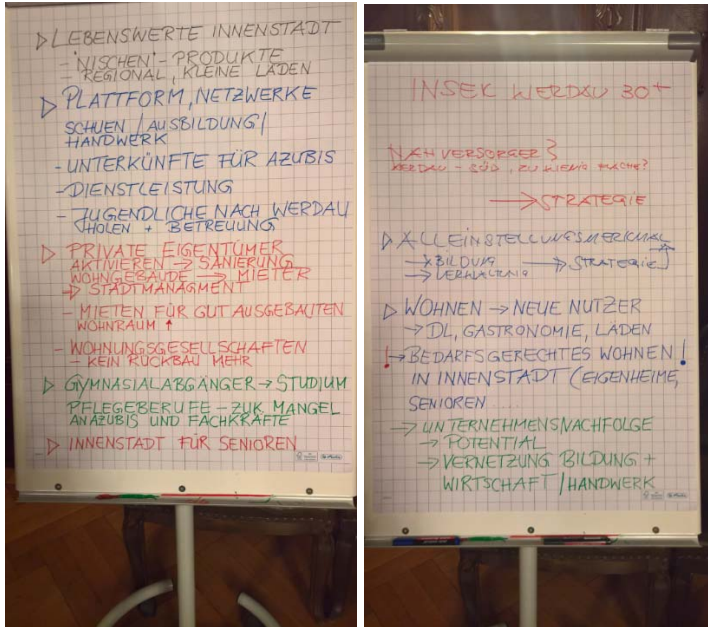 ▷ LEBENSWERTE INNENSTADT
- "NISCHEN" - PRODUKTE
- REGIONAL, KLEINE LÄDEN
▷ PLATTFORM, NETZWERKE
SCHUEN / AUSBILDUNG /
HANDWERK
- UNTERKÜNFTE FÜR AZUBIS
- DIENSTLEISTUNG
- JUGENDLICHE NACH WERDAU
HOLEN + BETREUUNG
▷ PRIVATE EIGENTÜMER
AKTIVIEREN → SANIERUNG
WOHNGEBÄUDE → MIETER
▷ STADTMANAGMENT
- MIETEN FÜR GUT AUSGEBAUTEN
WOHNRAUM ↑
- WOHNUNGSGESELLSCHAFTEN
- KEIN RÜCKBAU MEHR
▷ GYMNASIALABGÄNGER → STUDIUM
PFLEGEBERUFE - ZUK. MANGEL
AN AZUBIS UND FACHKRÄFTE
▷ INNENSTADT FÜR SENIOREN
INSEK WERDAU 30+
NAHVERSORGER?
WERDAU - SÜD, ZU WENIG FLÄCHE?
→ STRATEGIE
▷ ALLEINSTELLUNGSMERKMAL
→ BILDUNG
→ STRATEGIE
▷ WOHNEN → NEUE NUTZER
→ DL, GASTRONOMIE, LÄDEN
! → BEDARFSGERECHTES WOHNEN !
IN INNENSTADT (EIGENHEIME,
SENIOREN
→ UNTERNEHMENSNACHFOLGE
→ POTENTIAL
→ VERNETZUNG BILDUNG +
WIRTSCHAFT / HANDWERK